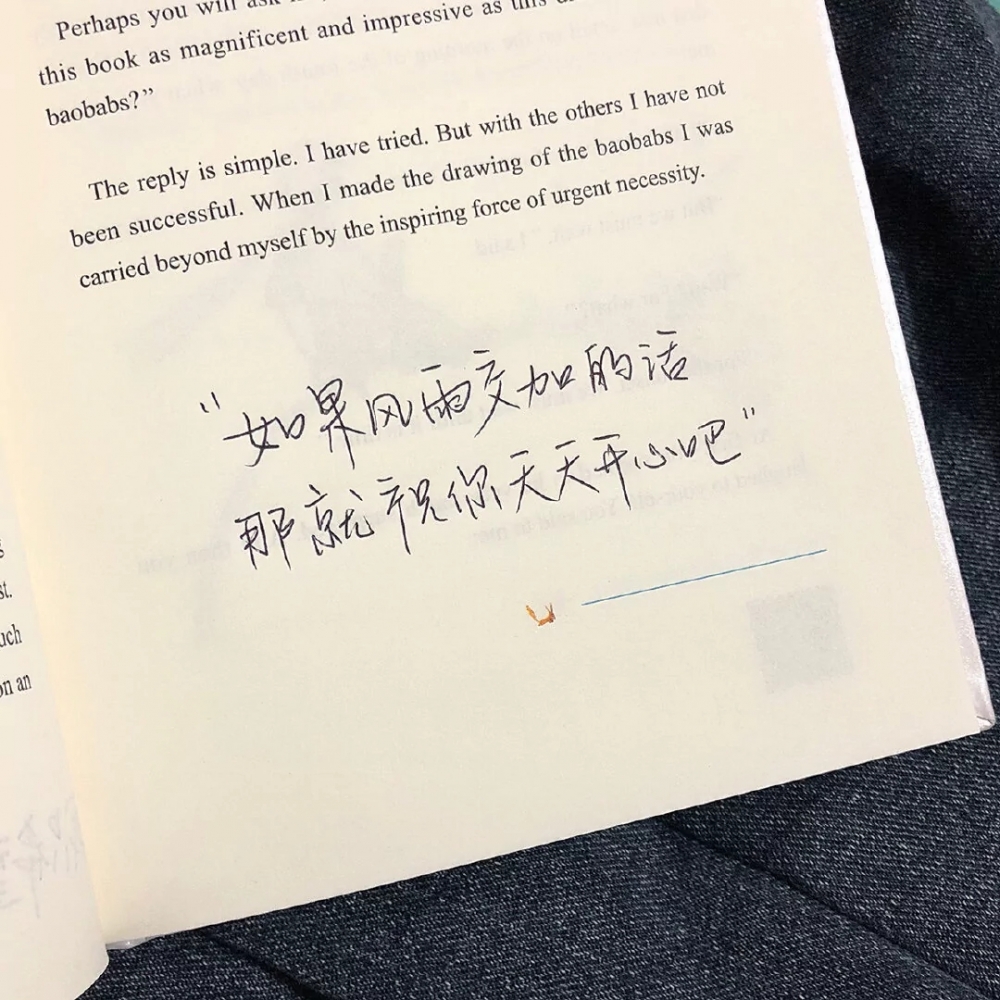 Perhaps you will ask
this book as magnificent and impressive as this
baobabs?”
The reply is simple. I have tried. But with the others I have not
been successful. When I made the drawing of the baobabs I was
carried beyond myself by the inspiring force of urgent necessity.
“如果风雨交加的话
那就祝你天天开心吧”
st.
uch
on an